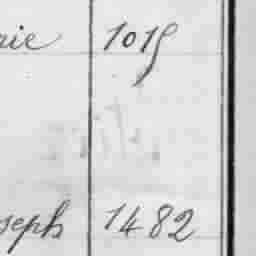 rie 1015
seph 1482